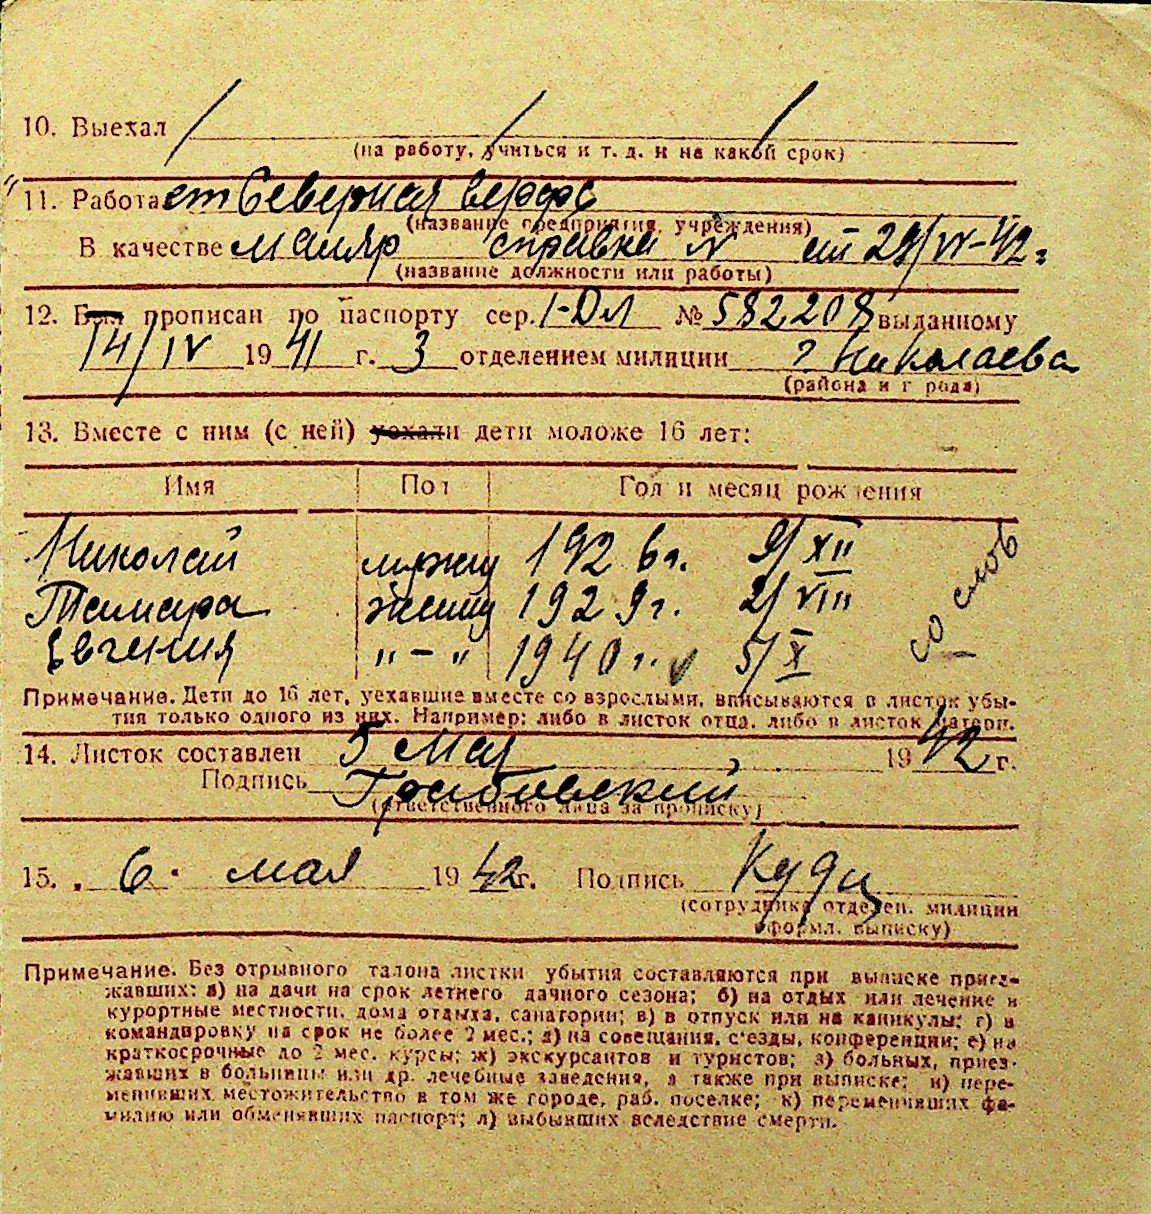 10. Выехал
(на работу, учиться и т. д. и на какой срок)
11. Работает Северная верфь
(название предприятия, учреждения)
В качестве маляр справка № от 29/IV-42 г.
(название должности или работы)
12. Был прописан по паспорту сер. I-ДЛ № 582208 выданному
14/IV 1941 г. 3 отделением милиции г. Николаева
(района и города)
13. Вместе с ним (с ней) уехали дети моложе 16 лет:
Имя Пол Год и месяц рождения
Николай мужск 1926 г. 9/XII
Тамара женск 1929 г. 2/VIII
Евгения "-" 1940 г. 5/X
со слов
Примечание. Дети до 16 лет, уехавшие вместе со взрослыми, вписываются в листок убы-
тия только одного из них. Например: либо в листок отца, либо в листок матери.
14. Листок составлен 5 мая 1942 г.
Подпись Грабовский
(ответственного лица за прописку)
15. 6 мая 1942 г. Подпись
(сотрудника отделен. милиции
оформл. выписку)
Примечание. Без отрывного талона листки убытия составляются при выписке приез-
жавших: а) на дачи на срок летнего дачного сезона; б) на отдых или лечение в
курортные местности, дома отдыха, санатории; в) в отпуск или на каникулы; г) в
командировку на срок не более 2 мес.; д) на совещания, съезды, конференции; е) на
краткосрочные до 2 мес. курсы; ж) экскурсантов и туристов; з) больных, приез-
жавших в больницы или др. лечебные заведения, а также при выписке; и) пере-
менивших местожительство в том же городе, раб. поселке; к) переменивших фа-
милию или обменявших паспорт; л) выбывших вследствие смерти.